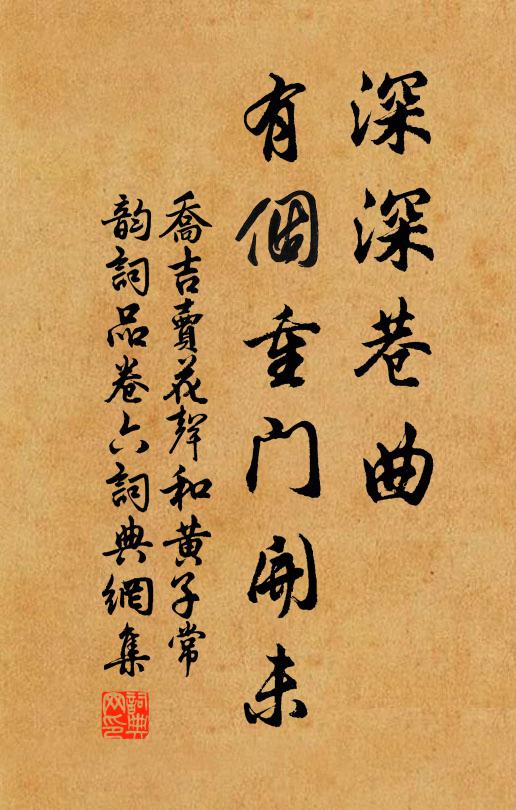 深深巷曲
有個重門開未
喬吉賣花聲和黃子常
韵詞品卷六詞典網集
詞典
网印